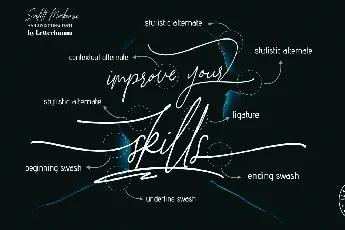 HANDWRITTEN FONT
by Letterhanna
stylistic alternate
contextual alternate
stylistic alternate
improve your
stylistic alternate
ligature
skills
beginning swash
ending swash
underline swash